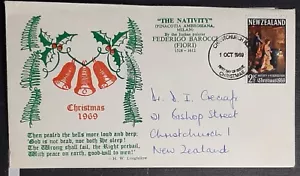 "THE NATIVITY"
(PINACOTIA AMBROSIANA,
MILAN)
By the Italian painter
FEDERIGO BAROCCI
(FIORI)
1528 - 1612
CHRISTCHURCH
1 OCT 1969
CHRISTMAS
NEW ZEALAND
2½c
Christmas 1969
Christmas
1969
Then pealed the bells more loud and deep;
'God is not dead, nor doth He sleep!
The Wrong shall fail, the Right prevail,
With peace on earth, good-will to men!'
H. W. Longfellow
Dr. D. I.
21 Bishop Street
Christchurch 1
New Zealand